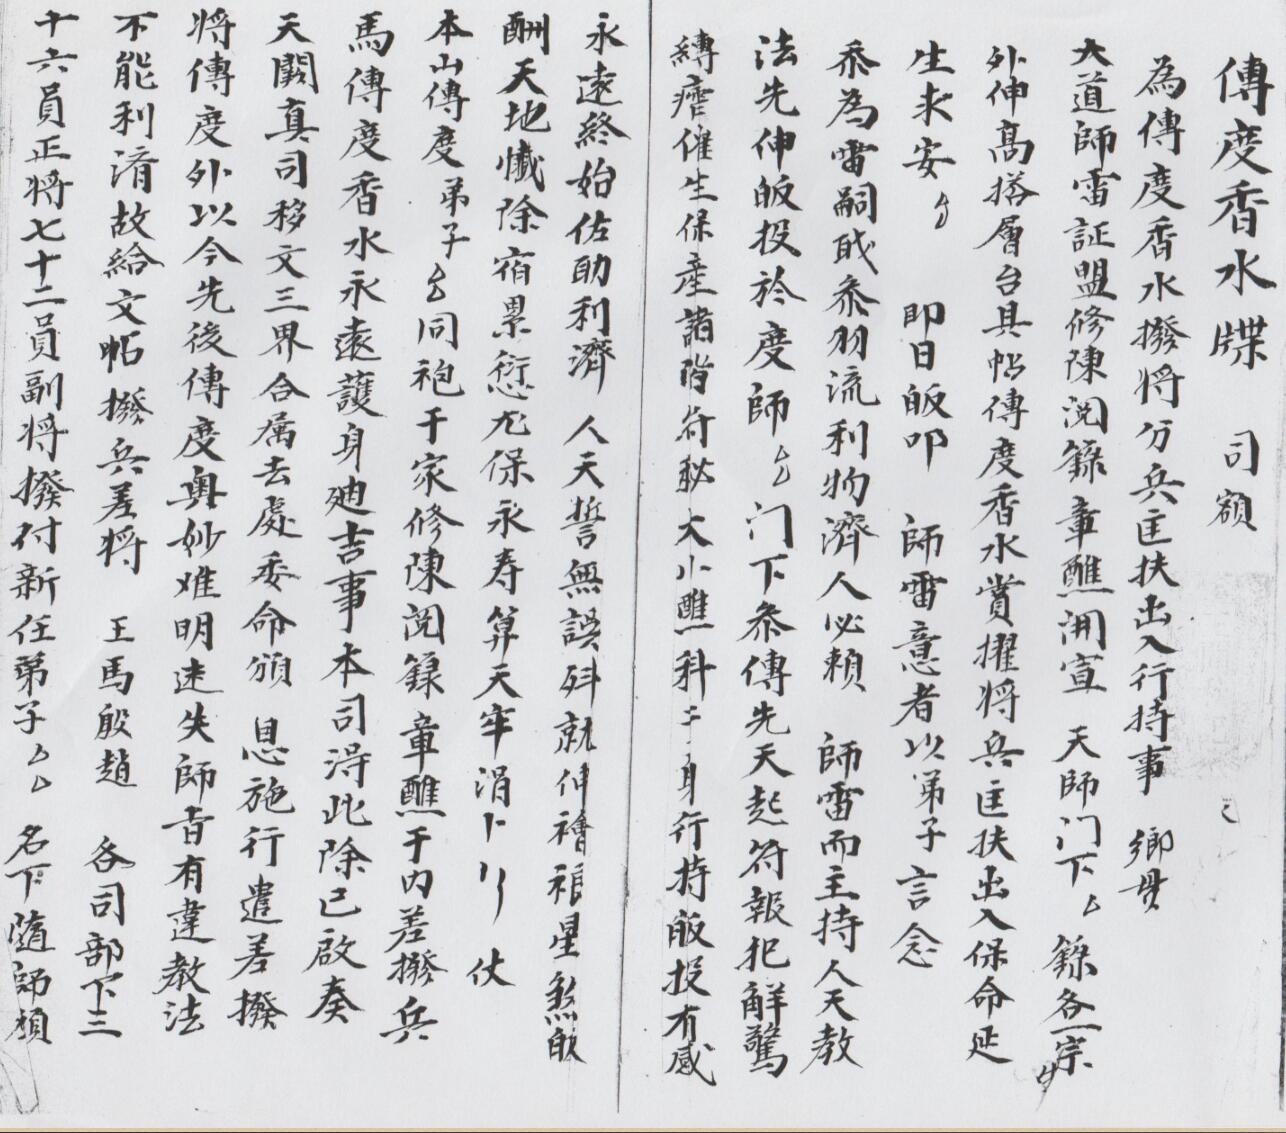 傳度香水牒 司額
為傳度香水撥将分兵匡扶出入行持事 鄉貫
大道師雷証盟修陳阅籙章醮開宣 天師门下厶籙各一宗
外伸髙搭層台具帖傳度香水賞擢将兵匡扶出入保命延
生求安厶 即日皈叩 師雷意者以弟子言念
忝為雷嗣戝忝羽流利物濟人必頼 師雷而主持人天教
法先伸皈投於度師厶门下叅傳先天起符報犯觧驚
縛瘧催生保産諸階符秘大小醮科二身行持皈投有感
永遠終始佐助利濟人天誓無誤斜就伸禬禳星煞皈
酬天地懺除宿累愆尤保永寿算天牢涓卜 仗
本山傳度弟子厶同袍于家修陳阅籙章醮于内差撥兵
馬傳度香水永遠護身廸吉事本司淂此除已啟奏
天闕真司移文三界合属去處委命頒 恩施行遣差撥
将傳度外以今先後傳度奥妙难明迷失師旨有違教法
不能利淯故給文帖撥兵差将 王馬殷趙 各司部下三
十六員正将七十二員副将撥付新任弟子厶厶 名下随師頫